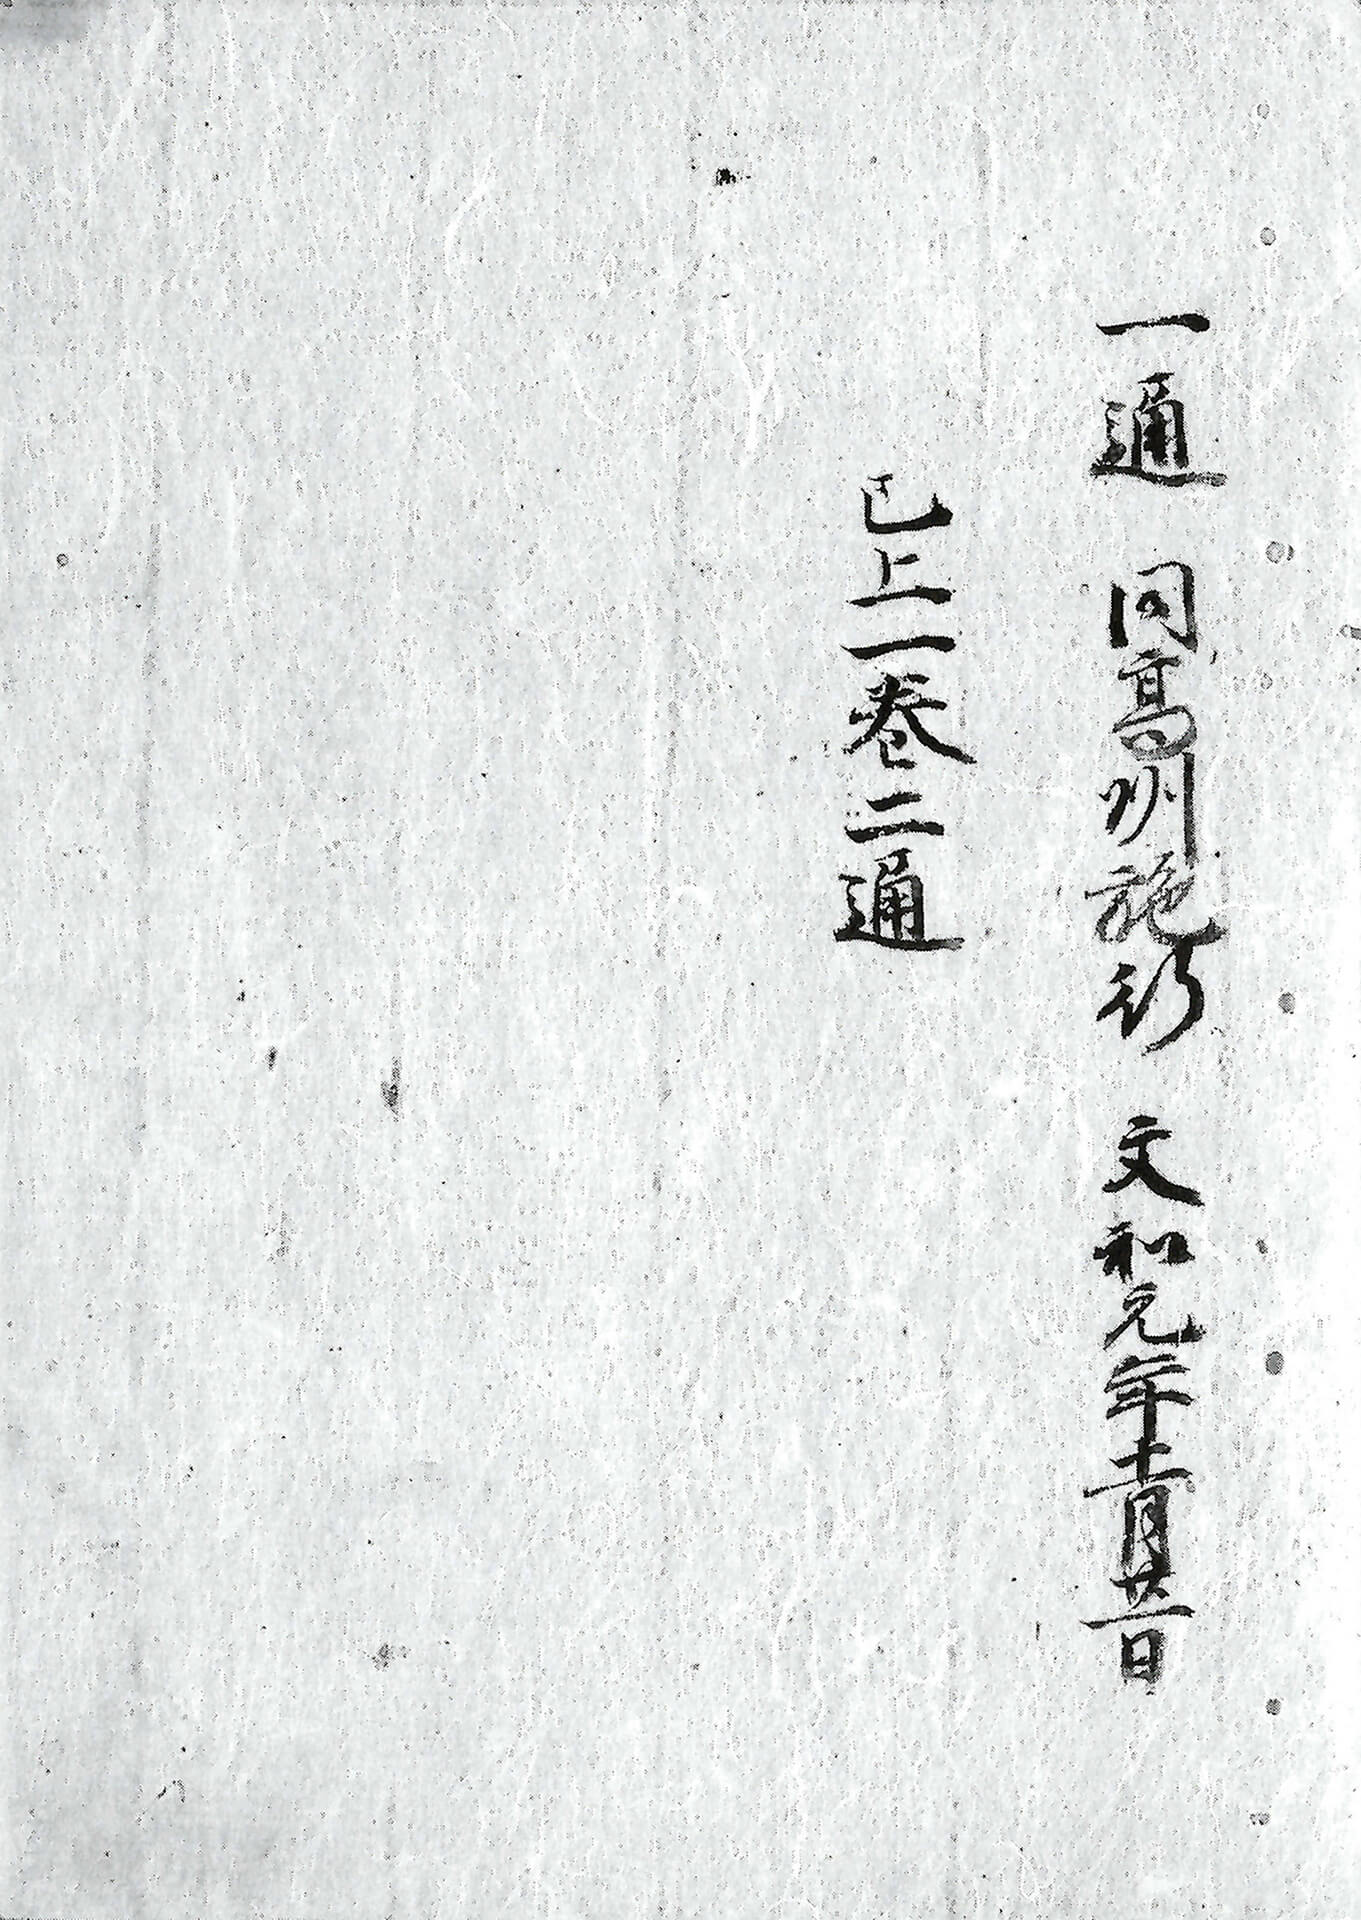 一通 同高州施行 文和元年十一月廿二日
已上一巻二通